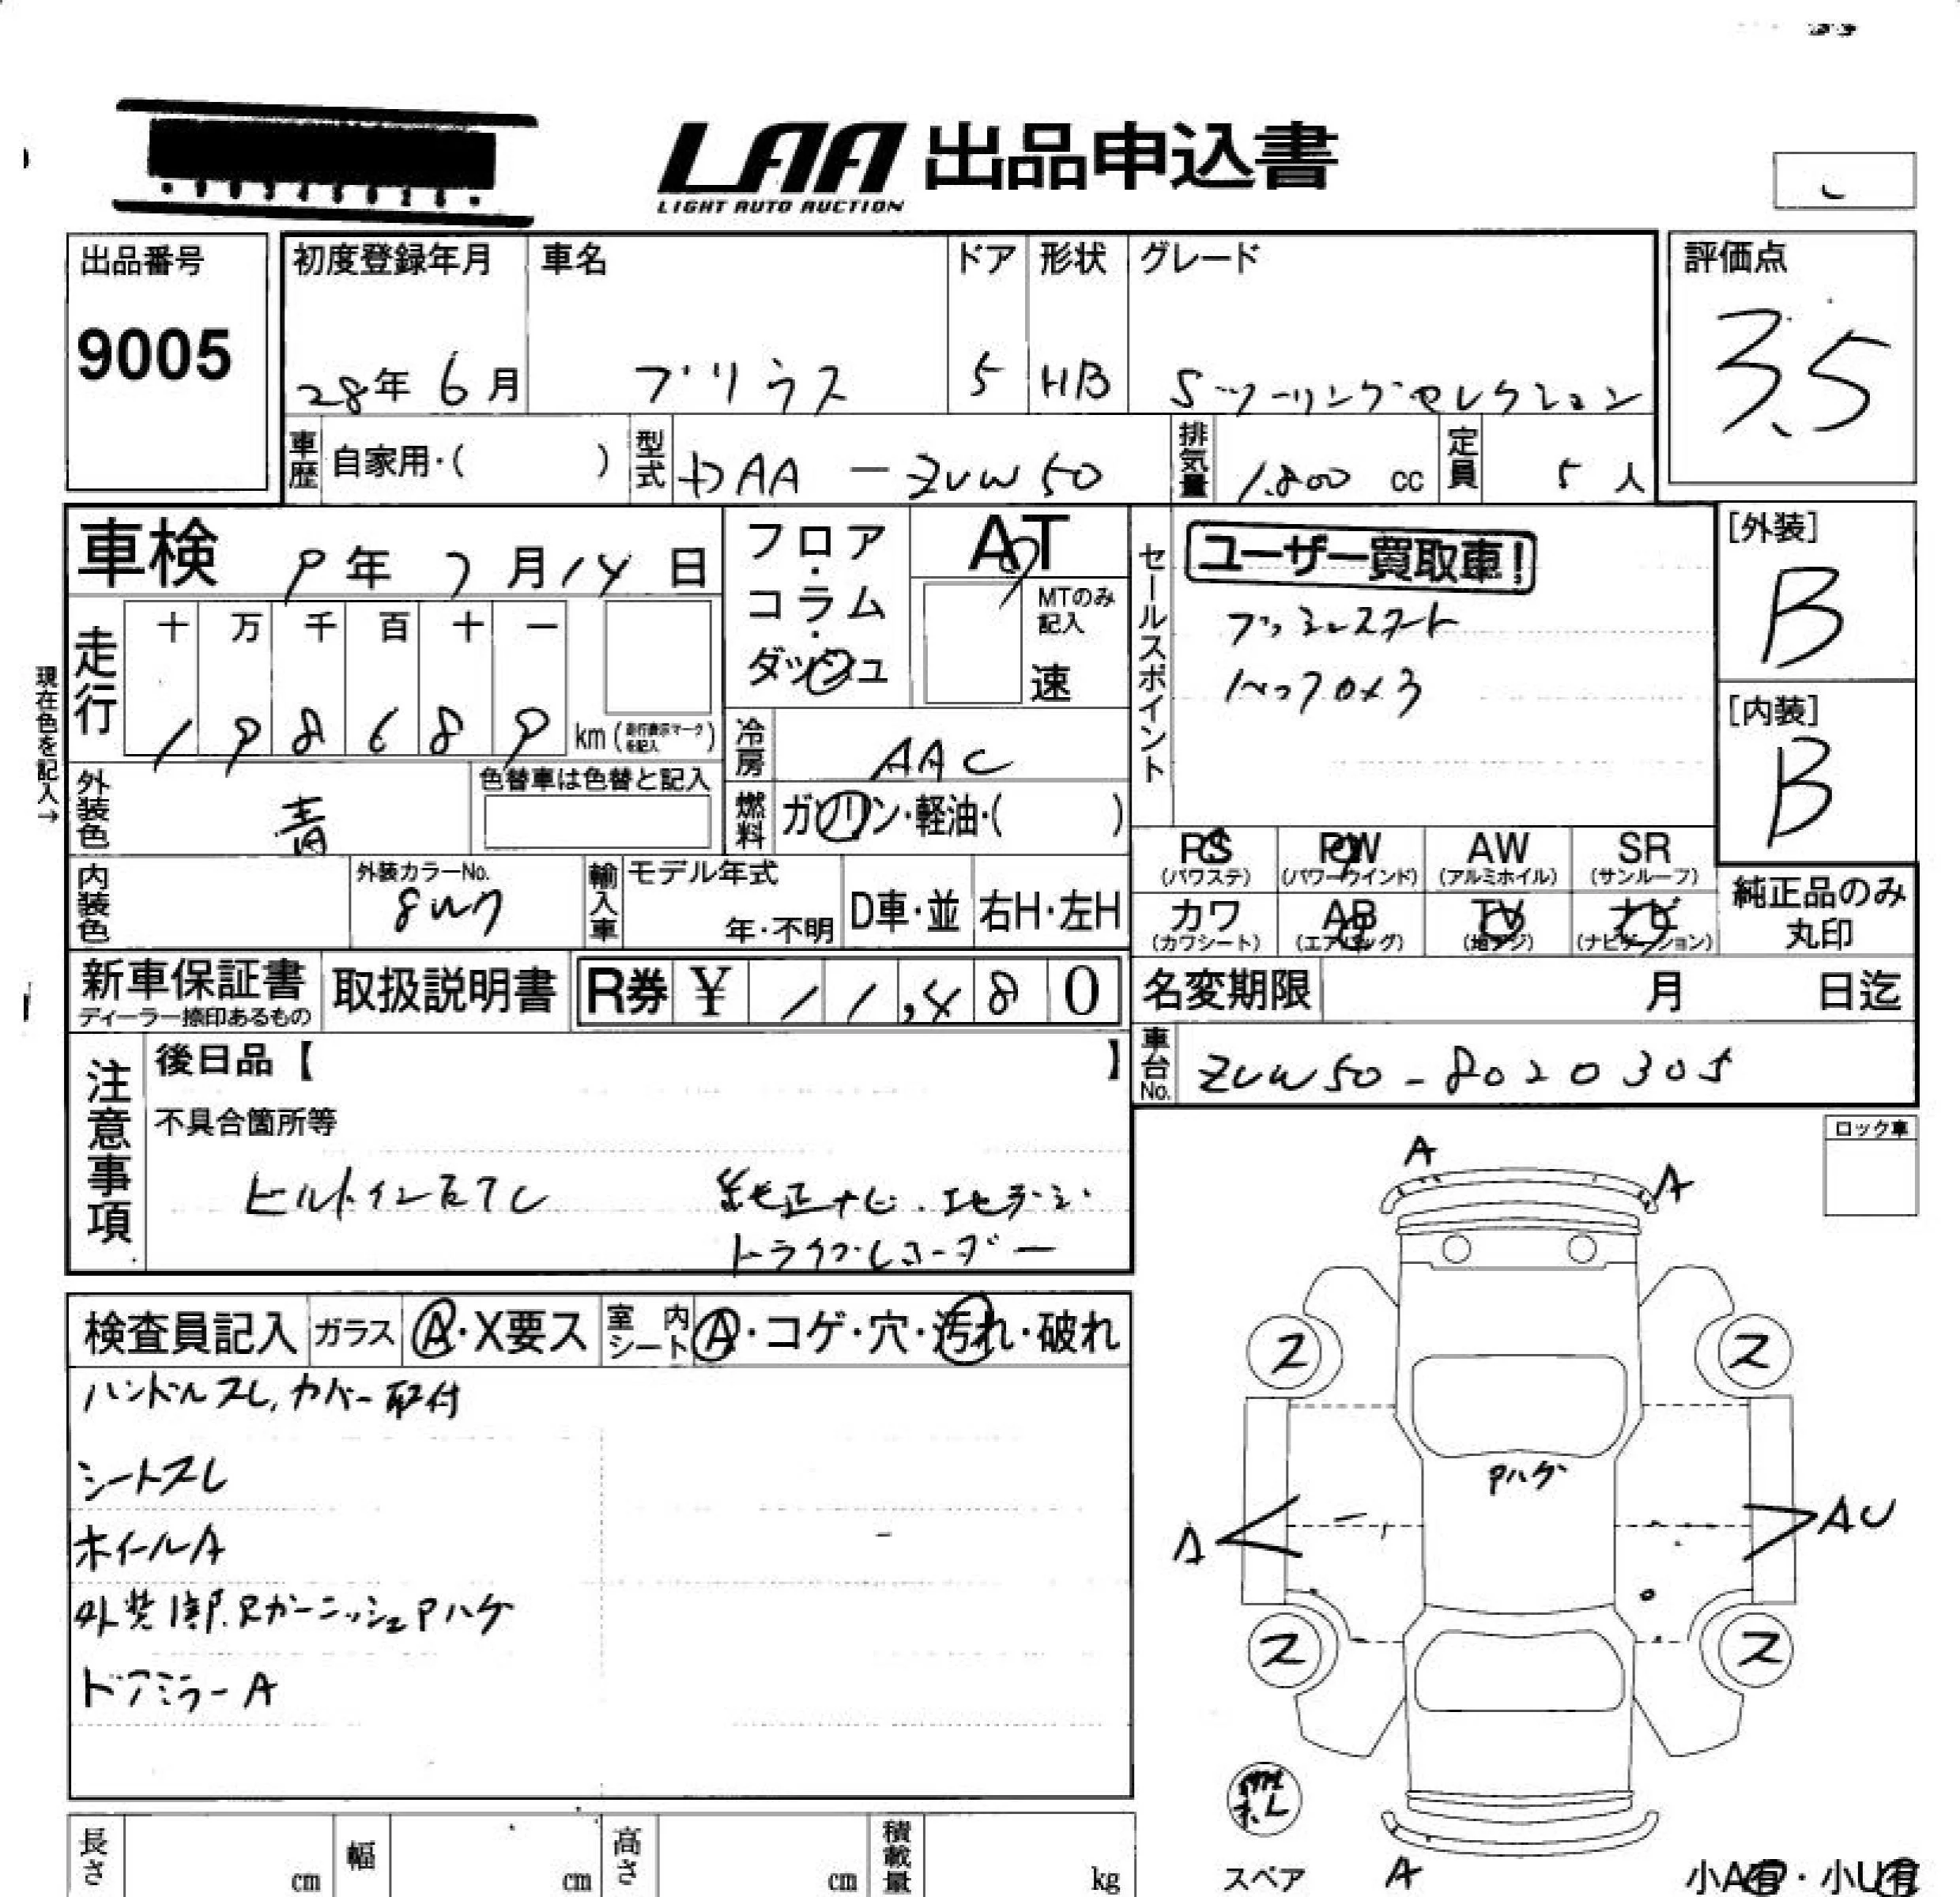 LAA 出品申込書
LIGHT AUTO AUCTION
出品番号
9005
初度登録年月
28年 6月
車名
プリウス
ドア
5
形状
HB
グレード
Sツーリングセレクション
評価点
3.5
車歴
自家用・( )
型式
DAA - ZVW50
排気量
1.800 cc
定員
5 人
車検 9年 7月 14日
走行
十 万 千 百 十 一
1 9 8 6 8 9 km (走行表示マークを記入)
現在色を記入→
フロア・コラム・ダッシュ
AT
MTのみ記入
速
セールスポイント
ユーザー買取車!
プッシュスタート
[外装]
B
[内装]
B
冷房
AAC
燃料
ガソリン・軽油・( )
外装色
青
色替車は色替と記入
内装色
外装カラーNo.
8W7
輸入車
モデル年式
年・不明
D車・並
右H・左H
PS (パワステ)
PW (パワーウインド)
AW (アルミホイル)
SR (サンルーフ)
カワ (カワシート)
AB (エアバッグ)
TV (地デジ)
ナビ (ナビゲーション)
純正品のみ丸印
新車保証書
ディーラー捺印あるもの
取扱説明書
R券 ¥ 11,480
名変期限 月 日迄
車台No.
ZVW50-8020305
注意事項
後日品【 】
不具合箇所等
ビルトインETC 純正ナビ.地デジ.
ドライブレコーダー
ロック車
検査員記入
ガラス
A・X要ス
室内シート
A・コゲ・穴・汚れ・破れ
ハンドルスレ,カバー取付
シートスレ
ホイールA
外装部.RガーニッシュPハゲ
ドアミラーA
A
A
ス
ス
Pハゲ
A
AU
ス
ス
スペア
A
小A有・小U有
長さ cm
幅 cm
高さ cm
積載量 kg